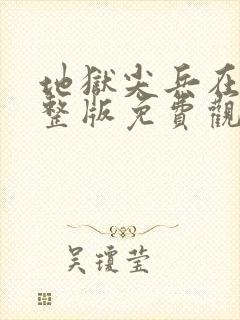 地獄尖兵在
整版免費觀
吳瓊莹